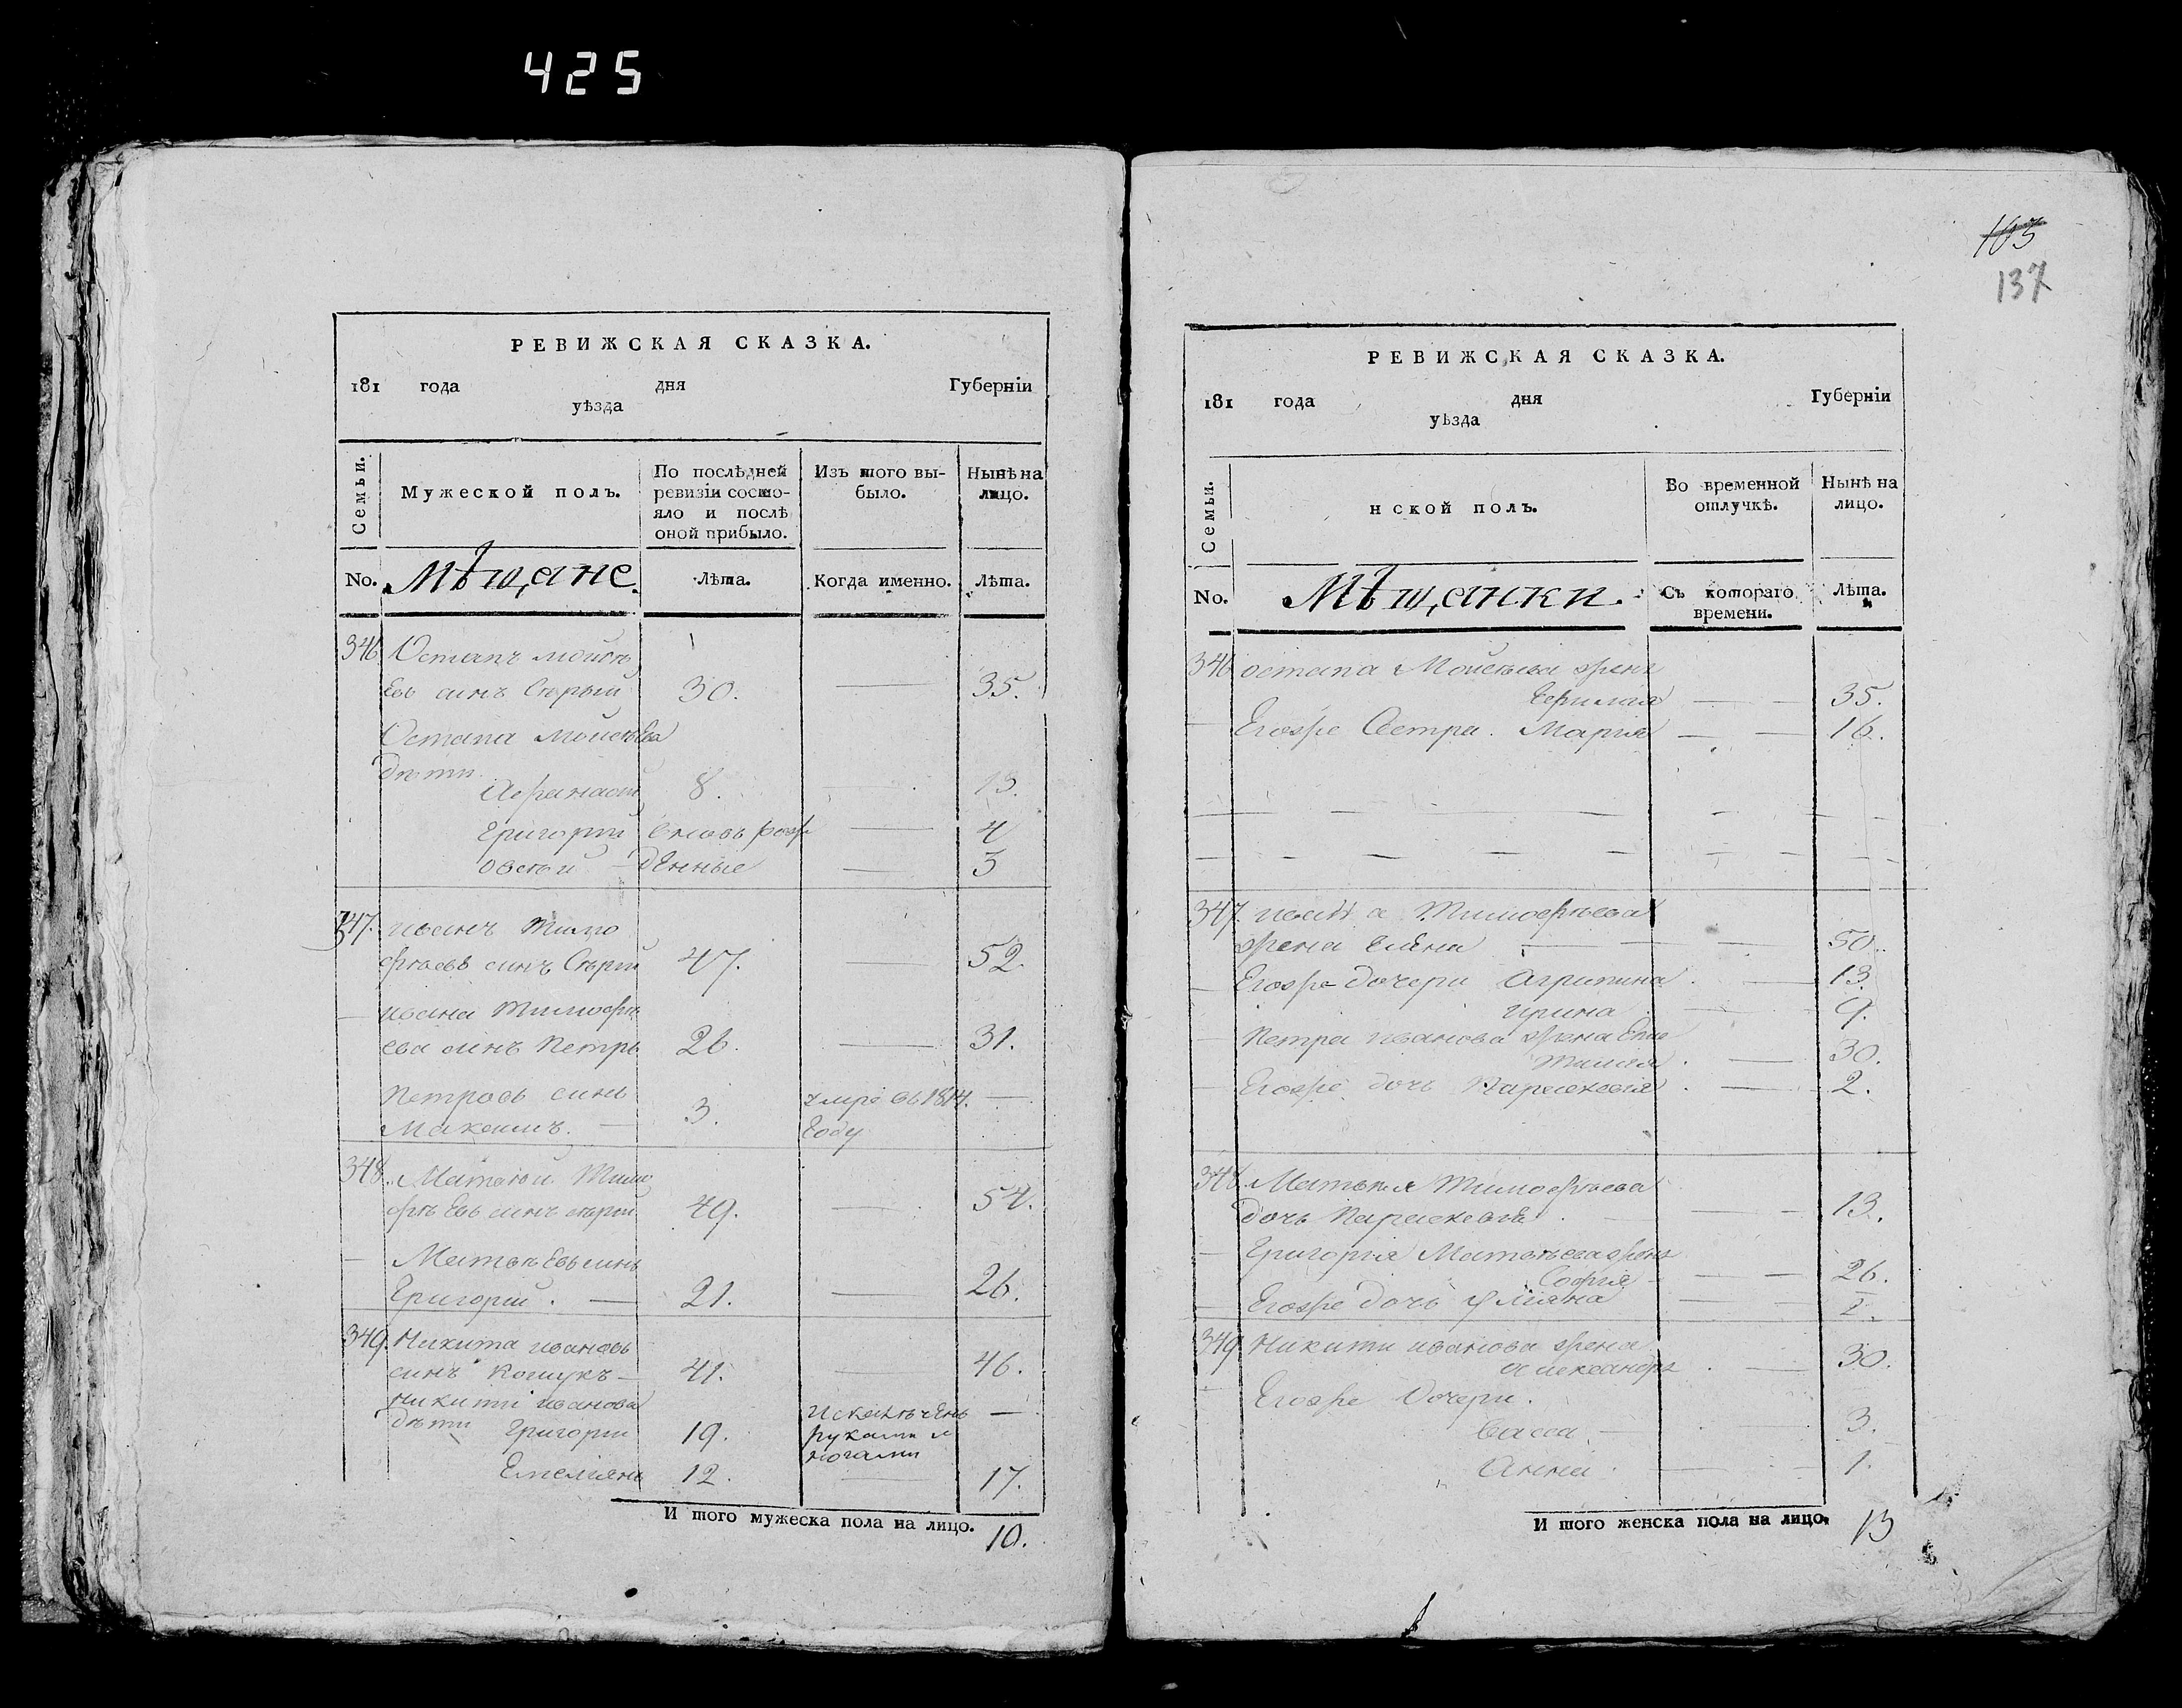 425
РЕВИЖСКАЯ СКАЗКА.
181 года дня Губерніи
уѣзда
Семьи.
Мужеской полъ.
По послѣдней
ревизіи состо-
яло и послѣ
оной прибыло.
Изъ того вы-
было.
Нынѣ на
лицо.
No. Мѣщане. Лѣта. Когда именно. Лѣта.
346. Остапъ Мойсѣ
евъ синъ Сѣрый 30. — 35.
Остапа Мойсѣева
дѣти
Афанасій 8. — 13.
Григорій вновь рож — 4
Овсѣй — денные — 3
347. Иванъ Тимо
фѣевъ синъ Сѣрій 47. — 52.
— Ивана Тимофѣ
ева синъ Петръ 26. — 31.
Петровъ синъ 3. умре въ 1814. —
Максимъ. — году
348. Матвѣй Тимо
фѣевъ синъ сѣрій 49. — 54.
— Матвѣевъ синъ
Григорій. — 21. — 26.
349. Никита Ивановъ
синъ — 41. — 46.
Никити Иванова
дѣти Григорій 19. искалѣченъ —
руками и
ногами
Емеліянъ 12. — 17.
И того мужеска пола на лицо. 10.
103
137
РЕВИЖСКАЯ СКАЗКА.
181 года дня Губерніи
уѣзда
Семьи.
нской полъ.
Во временной
отлучкѣ.
Нынѣ на
лицо.
No. Мѣщанки. Съ котораго
времени. Лѣта.
346 Остапа Мойсѣева жена
— — 35.
— Егожъ Сестра. Марія — — 16.
347. Ивана Тимофѣева
жена — — — 50.
— Егоже дочери Агрипина. — 13.
Ирина. — 9.
— Петра Иванова жена
— 30.
— Егоже дочь Параскевія. — 2.
348. Матвѣя Тимофѣева
дочь Параскевія. — — — 13.
— Григорія Матвѣева жена
Софія — — — 26.
— Егоже дочь Уліяна — — 2.
349 Никити Иванова жена
Александра. — 30.
— Егоже Дочери.
Васса. — — 3.
Анна. — — 1.
И того женска пола на лицо. 13